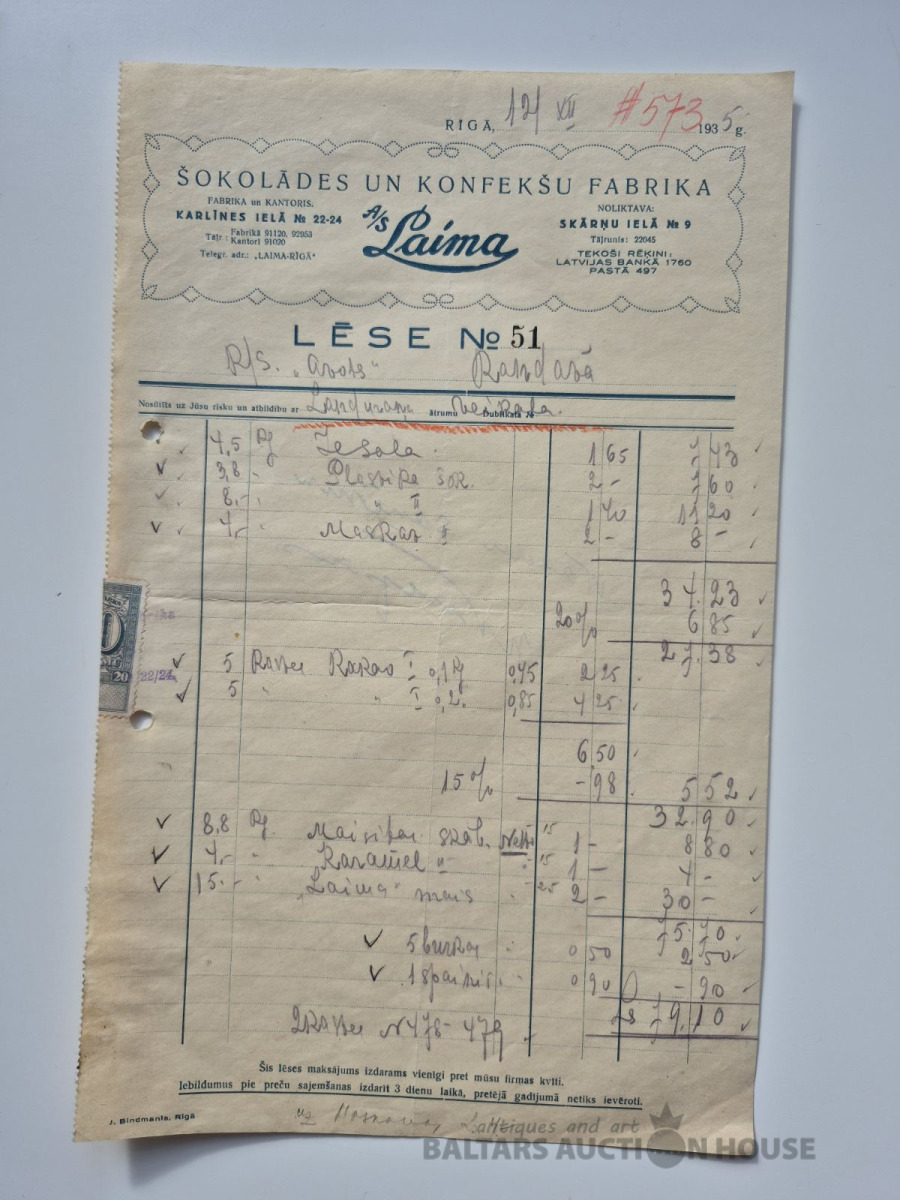 RIGĀ, 12/XII #573 1935 g.
ŠOKOLĀDES UN KONFEKŠU FABRIKA
FABRIKA UN KANTORIS:
KARLĪNES IELĀ № 22-24
Tāļr.: Fabrikā 91120, 92953
Kantorī 91020
Telegr. adr.: „LAIMA-RĪGĀ"
A/S Laima
NOLIKTAVA:
SKĀRŅU IELĀ № 9
Tāļrunis: 22045
TEKOŠI RĒĶINI:
LATVIJAS BANKĀ 1760
PASTĀ 497
LĒSE № 51
R/S. „Avots" Kandavā
Nosūtīts uz Jūsu risku un atbildību ar ātrumu Dublikats №
4,5 Kg 1 65 7 43
3,8 " Plastika šok. 2 - 7 60
8,- " " II 1 40 11 20
4,- " Maskav. II 2 - 8 -
34.23
20% 6 85
27.38
5 Kakao I 0,1 Kg 0,45 2 25
5 " " I 0,2 0,85 4 25
6 50
15% - 98 5 52
32.90
8,8 Kg. skāb. Netto 15 1 - 8 80
4,- " Karamel " " 15 1 - 4 -
15.- " „Laima" mais " 25 2 - 30 -
75.70
5 burkas " 0 50 2 50
1 spainis " 0 90 - 90
Ls 79.10
2 N 478-479
Šis lēses maksājums izdarams vienīgi pret mūsu firmas kvīti.
Iebildumus pie preču sajemšanas izdarīt 3 dienu laikā, pretējā gadījumā netiks ievēroti.
J. Bindmants, Rīgā
22/24
20
Antiques and art
BALTARS AUCTION HOUSE